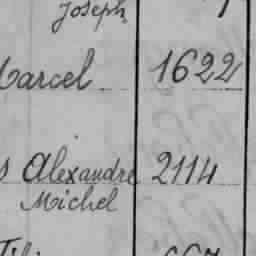 Joseph
Marcel 1622
Alexandre 2114
Michel